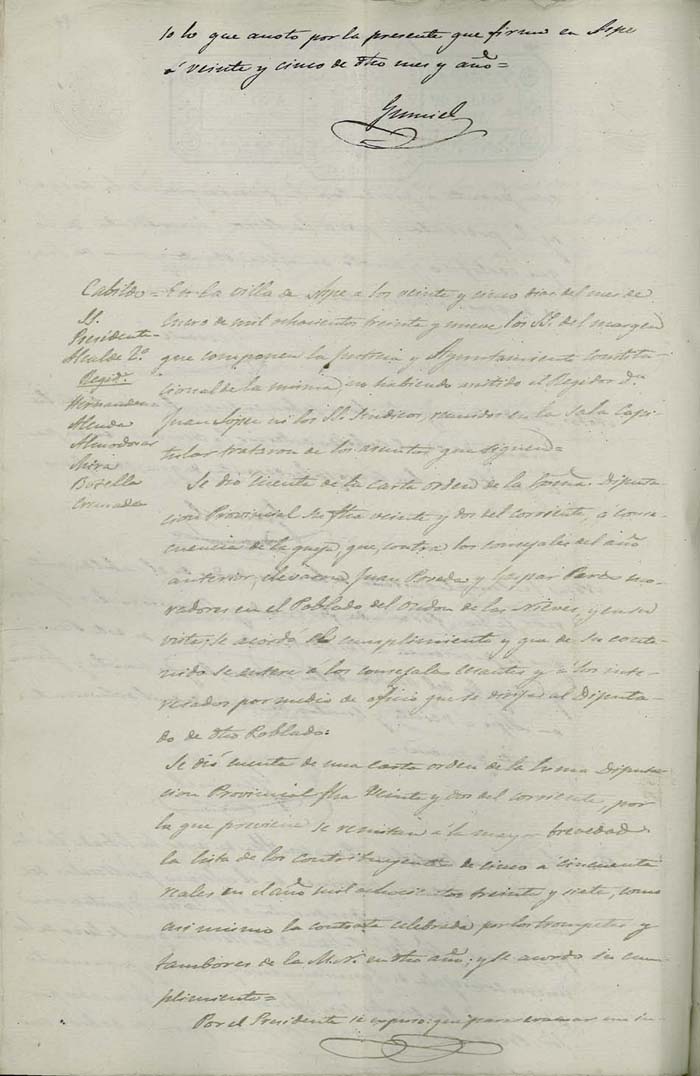 lo que anoto por la presente que firmo en Aspe
á veinte y cinco de dho mes y año=
Gumiel
Cabildo=
SS.
Presidente
Alcalde 2º
Regids
Hernandez
Alenda
Almodovar
Mira
Botella
Cremades
En la villa de Aspe a los veinte y cinco dias del mes de
Enero de mil ochocientos treinta y nueve los SS. del margen
que componen la Justicia y Ayuntamiento Constitu-
cional de la misma, no habiendo asistido el Regidor Dn
Juan Lopez ni los SS. Sindicos, reunidos en la Sala Capi-
tular trataron de los asuntos que siguen=
Se dió cuenta de la carta orden de la Exma. Diputa-
cion Provincial su fha veinte y dos del corriente, a conse-
cuencia de la queja que, contra los consejales del año
anterior, elevaron Juan Poveda y Gaspar Pardo mo-
radores en el Poblado del Ondon de las Nieves, y en su
vista; se acordó el cumplimiento y que de su conte-
nido se entere a los consejales cesantes y a los inte-
resados por medio de oficio que se dirija al Diputa-
do de dho Poblado:
Se dió cuenta de una carta orden de la Exma Diputa-
cion Provincial fha Veinte y dos del corriente, por
la que previene se remitan á la mayor brevedad
la lista de los contribuyentes de cinco a cincuenta
reales en el año mil ochocientos treinta y siete, como
asi mismo la contrata celebrada por los trompetas y
tambores de la M. N. en dho año; y se acordo su cum-
plimiento=
Por el Presidente se espuso: que para evacuar un in-